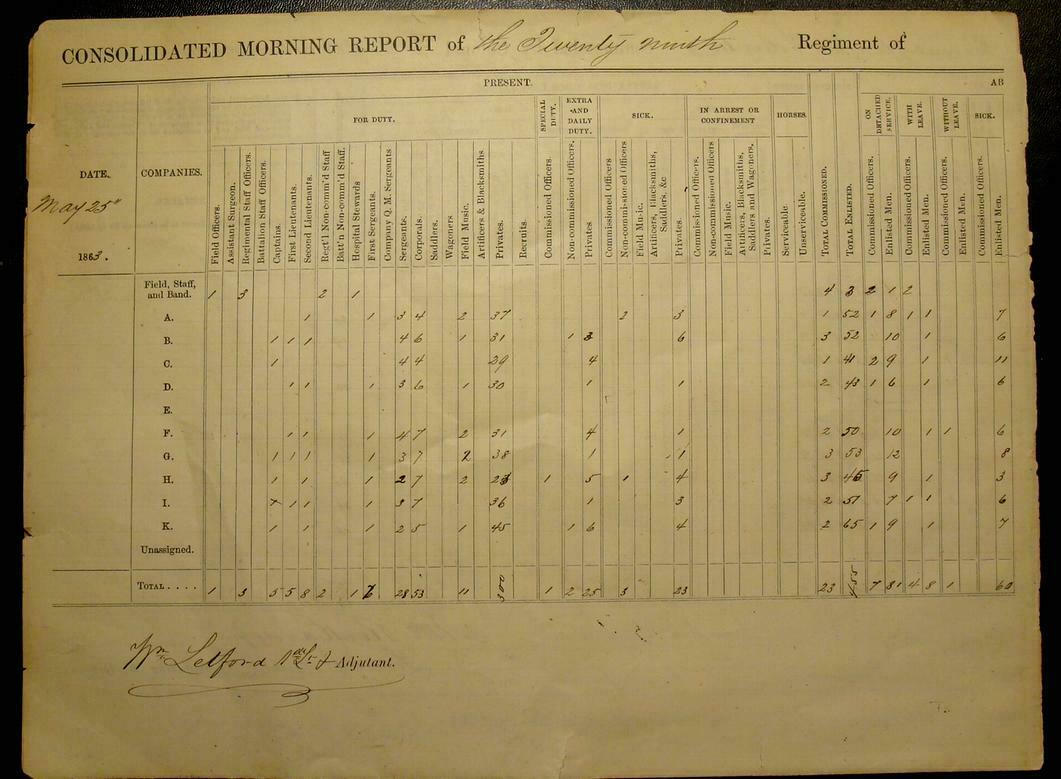 CONSOLIDATED MORNING REPORT of the Twenty ninth Regiment of
PRESENT. AB
FOR DUTY. SPECIAL DUTY. EXTRA AND DAILY DUTY. SICK. IN ARREST OR CONFINEMENT HORSES. ON DETACHED SERVICE. WITH LEAVE. WITHOUT LEAVE. SICK.
DATE. COMPANIES. Field Officers. Assistant Surgeon. Regimental Staff Officers. Battalion Staff Officers. Captains. First Lieutenants. Second Lieutenants. Regt'l Non-comm'd Staff Batt'n Non-comm'd Staff. Hospital Stewards First Sergeants. Company Q. M. Sergeants Sergeants. Corporals. Saddlers. Wagoners Field Music. Artificers & Blacksmiths Privates. Recruits. Commissioned Officers. Non-commissioned Officers. Privates. Commissioned Officers Non-commissioned Officers Field Music. Artificers, Blacksmiths, Saddlers, &c Privates. Commissioned Officers. Non-commissioned Officers Field Music. Artificers, Blacksmiths, Saddlers and Wagoners. Privates. Serviceable. Unserviceable. TOTAL COMMISSIONED. TOTAL ENLISTED. Commissioned Officers. Enlisted Men. Commissioned Officers. Enlisted Men. Commissioned Officers. Enlisted Men. Commissioned Officers. Enlisted Men.
May 25"
1863.
Field, Staff, and Band. 1 3 2 1 4 3 2 1 2
A. 1 1 3 4 2 37 2 3 1 52 1 8 1 1 7
B. 1 1 1 4 6 1 31 1 3 6 3 52 10 1 6
C. 1 4 4 29 4 1 41 2 9 1 11
D. 1 1 1 3 6 1 30 1 1 2 43 1 6 1 6
E.
F. 1 1 1 4 7 2 31 4 1 2 50 10 1 1 6
G. 1 1 1 1 3 7 2 38 1 1 3 53 12 8
H. 1 1 1 2 7 2 5 4 3 1 1 9 1 3
I. 1 1 1 3 7 36 1 3 2 51 7 1 1 6
K. 1 1 1 2 5 1 45 1 6 4 2 65 1 9 1 7
Unassigned.
TOTAL.... 1 3 5 5 8 2 1 28 53 11 300 1 2 25 3 23 23 455 7 81 4 8 1 60
Wm Letford 1st Lt & Adjutant.